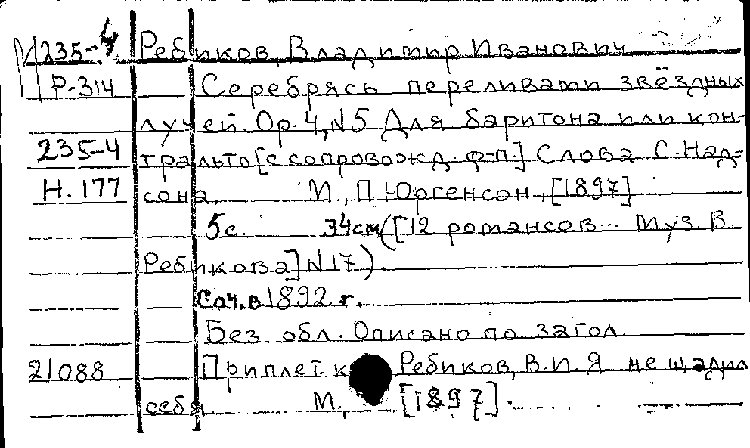 М235-4 Ребиков, Владимир Иванович
Р-314 Серебрясь переливами звёздных
лучей. Ор. 4, N5 Для баритона или кон-
235-4 тральто [с сопровожд. ф-п.] Слова С. Над-
Н.177 сона. М., П. Юргенсон, [1897]
5с. 34см ([12 романсов... Муз. В.
Ребикова] N17).
Соч. в 1892 г.
Без обл. Описано по загол.
21088 Приплет к Ребиков, В.И. Я не щадил
себя М., [1897].